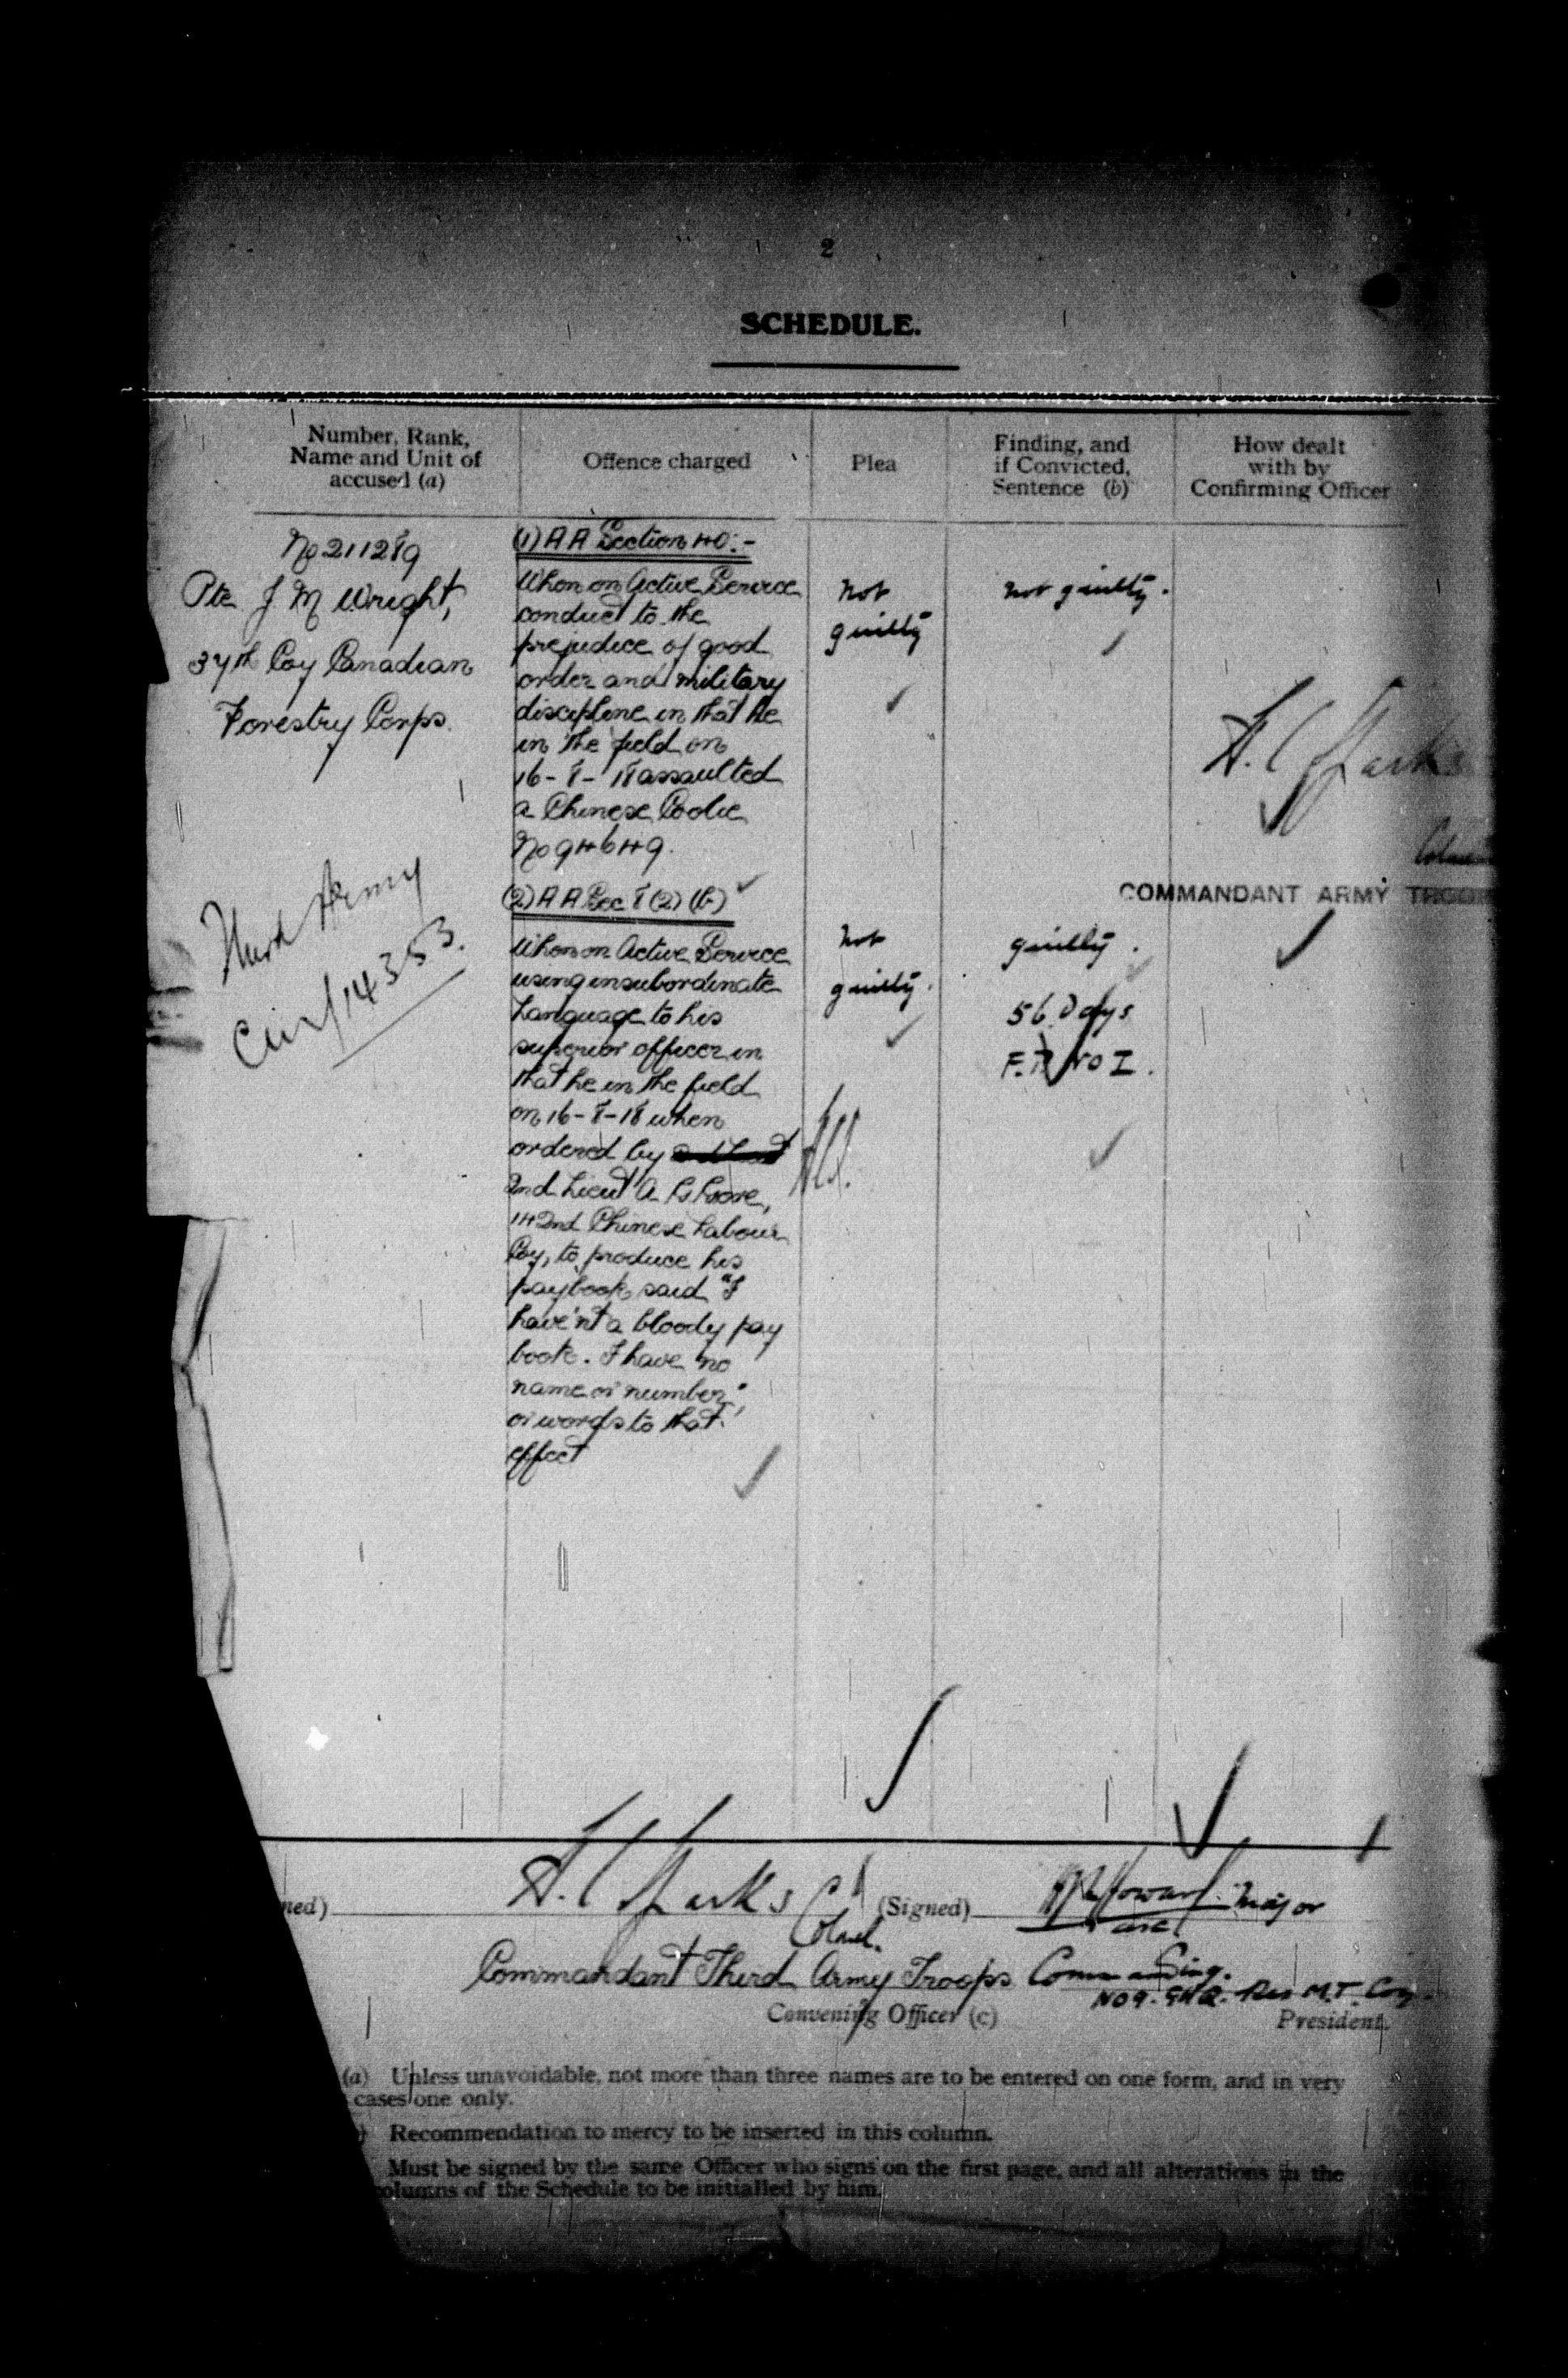 2
SCHEDULE.
Number, Rank,
Name and Unit of
accused (a)
Offence charged
Plea
Finding, and
if Convicted,
Sentence (b)
How dealt
with by
Confirming Officer
No 211289
Pte J M Wright,
37th Coy Canadian
Forestry Corps.
Third Army
14353.
(1) A A Section 40:-
When on Active Service
conduct to the
prejudice of good
order and military
discipline in that he
in the field on
16-8-18 assaulted
a Chinese Coolie
No 94649.
Not
guilty
Not guilty.
(2) A A Sec 8 (2) (b)
When on Active Service
using insubordinate
Language to his
superior officer in
that he in the field
on 16-8-18 when
ordered by
2nd Lieut A G
142nd Chinese Labour
Coy, to produce his
paybook said "I
have'nt a bloody pay
book. I have no
name or number",
or words to that
effect
Not
guilty.
guilty.
56 Days
F.P. No I.
COMMANDANT ARMY TROO
ned)
(Signed)
Major
Commandant Third Army Troops
Commanding.
No 9. GHQ. Res M.T. Coy.
Convening Officer (c)
President.
(a) Unless unavoidable, not more than three names are to be entered on one form, and in very
cases one only.
) Recommendation to mercy to be inserted in this column.
Must be signed by the same Officer who signs on the first page, and all alterations in the
olumns of the Schedule to be initialled by him.